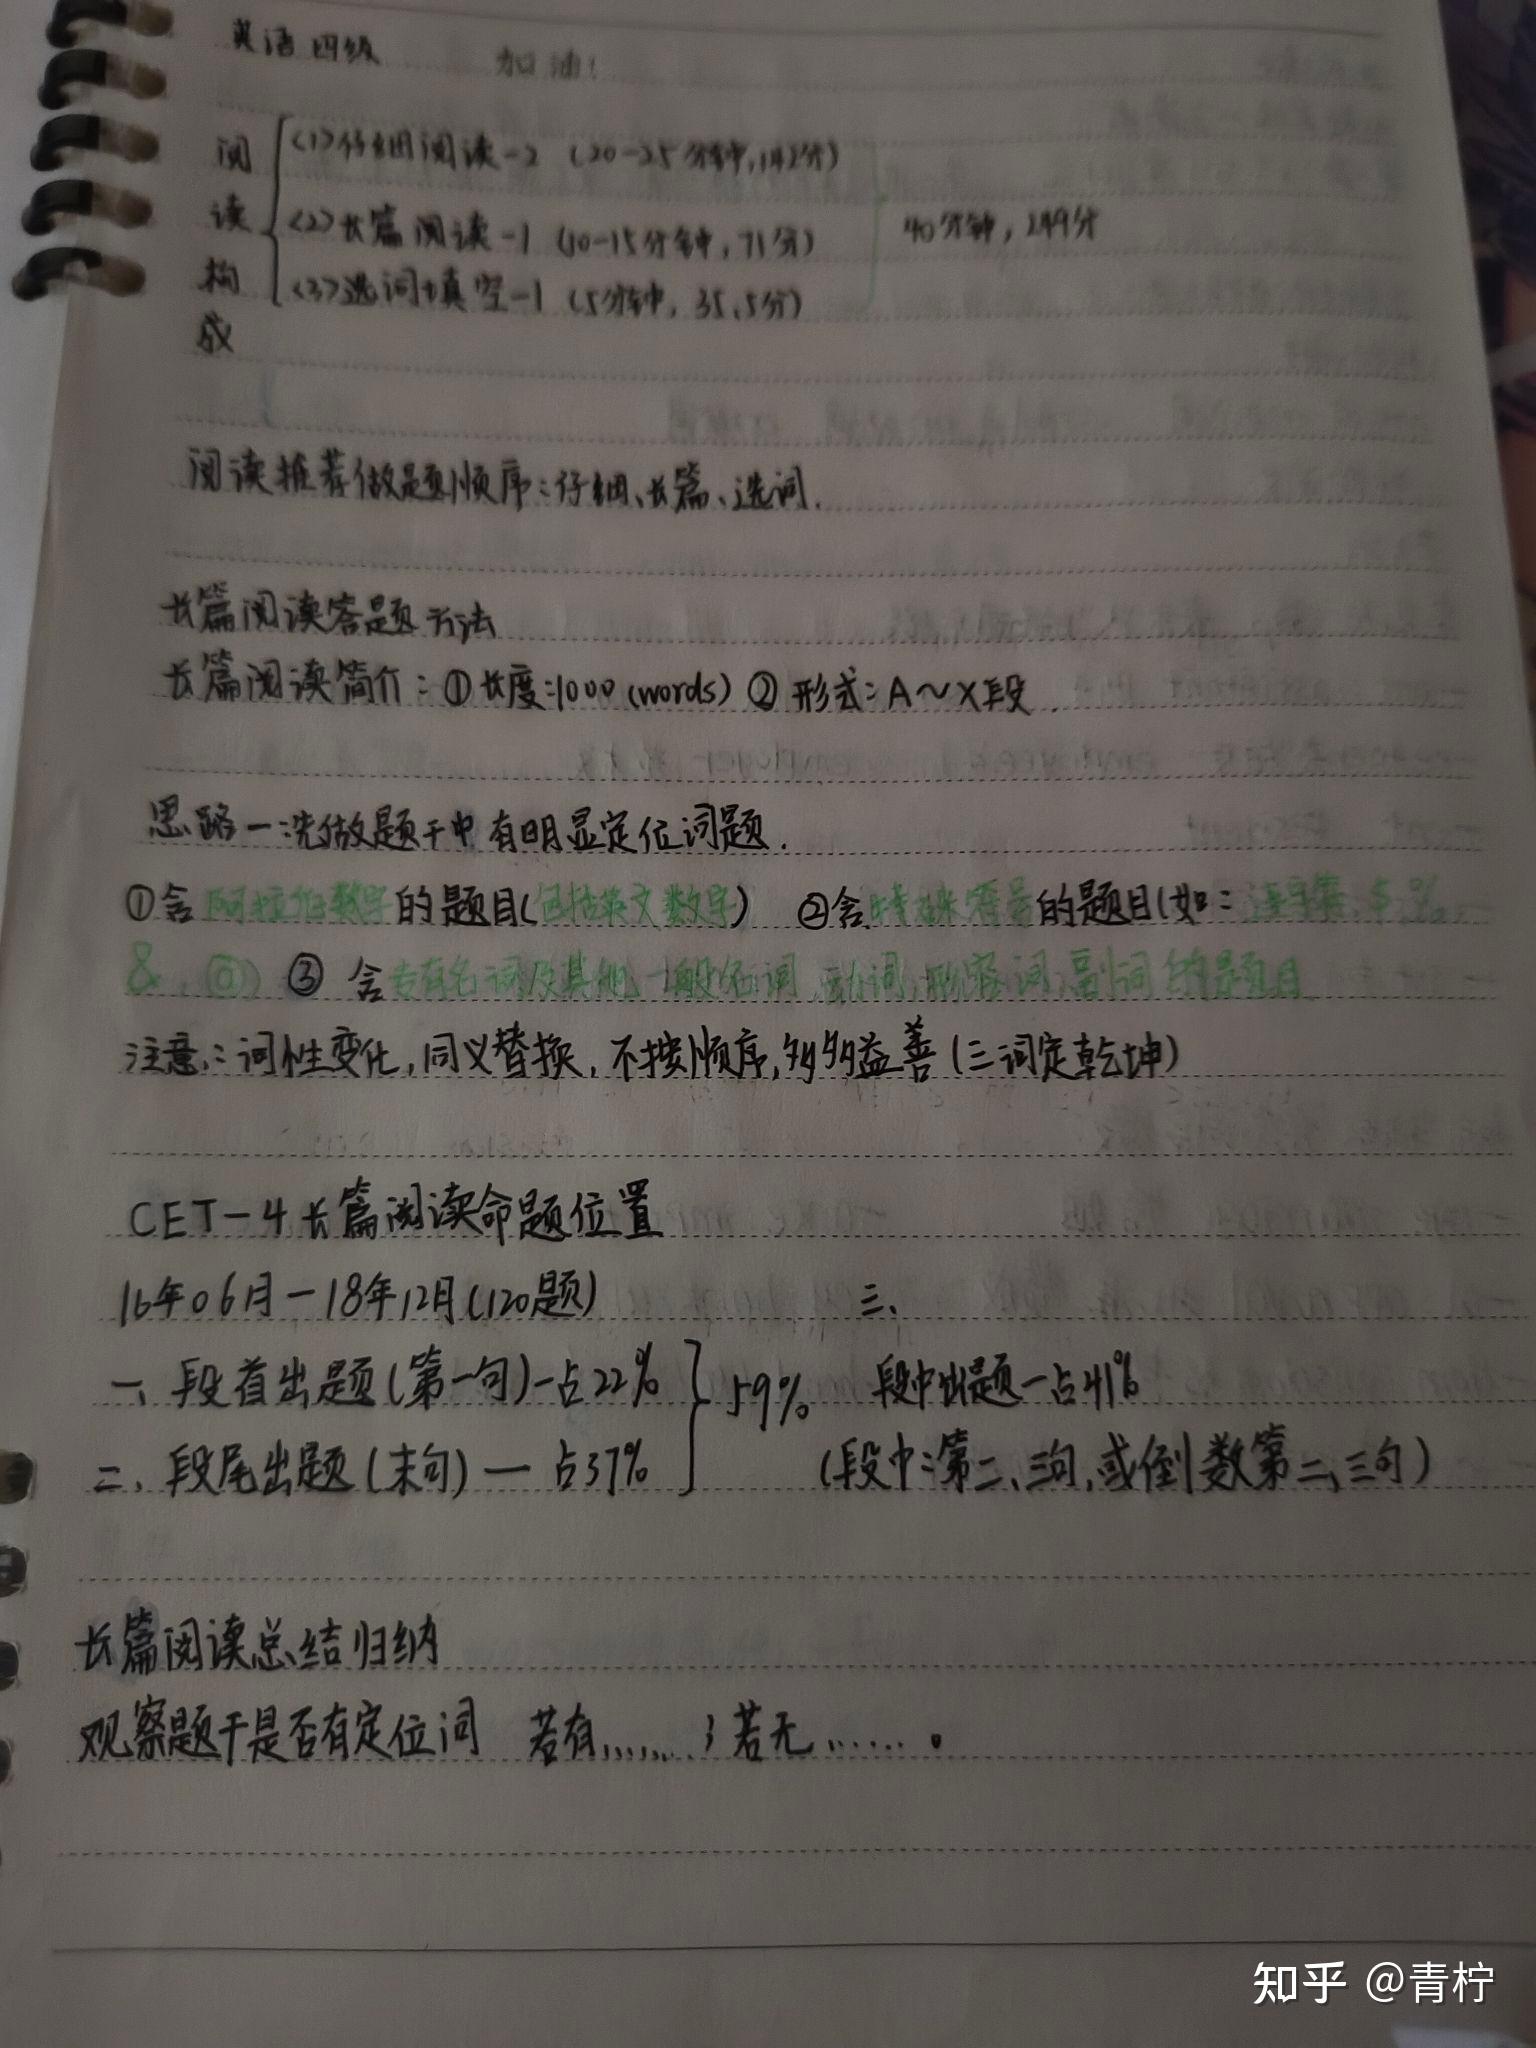 英语四级 加油!
阅读构成
(1)仔细阅读-2 (20-25分钟,142分)
(2)长篇阅读-1 (10-15分钟,71分)
(3)选词填空-1 (5分钟,35.5分)
40分钟,249分
阅读推荐做题顺序:仔细、长篇、选词.
长篇阅读答题方法
长篇阅读简介:①长度:1000(words) ②形式:A~X段.
思路一:先做题干中有明显定位词题.
①含阿拉伯数字的题目(包括英文数字) ②含特殊符号的题目(如:连字符、$、%、
&、@) ③含专有名词及其他一般名词、动词、形容词、副词的题目
注意:词性变化,同义替换,不按顺序,多多益善(三词定乾坤)
CET-4长篇阅读命题位置
16年06月-18年12月(120题) 三、
一、段首出题(第一句)-占22% 59% 段中出题-占41%
二、段尾出题(末句)—占37% (段中:第二、三句,或倒数第二、三句)
长篇阅读总结归纳
观察题干是否有定位词 若有......;若无......。
知乎 @青柠